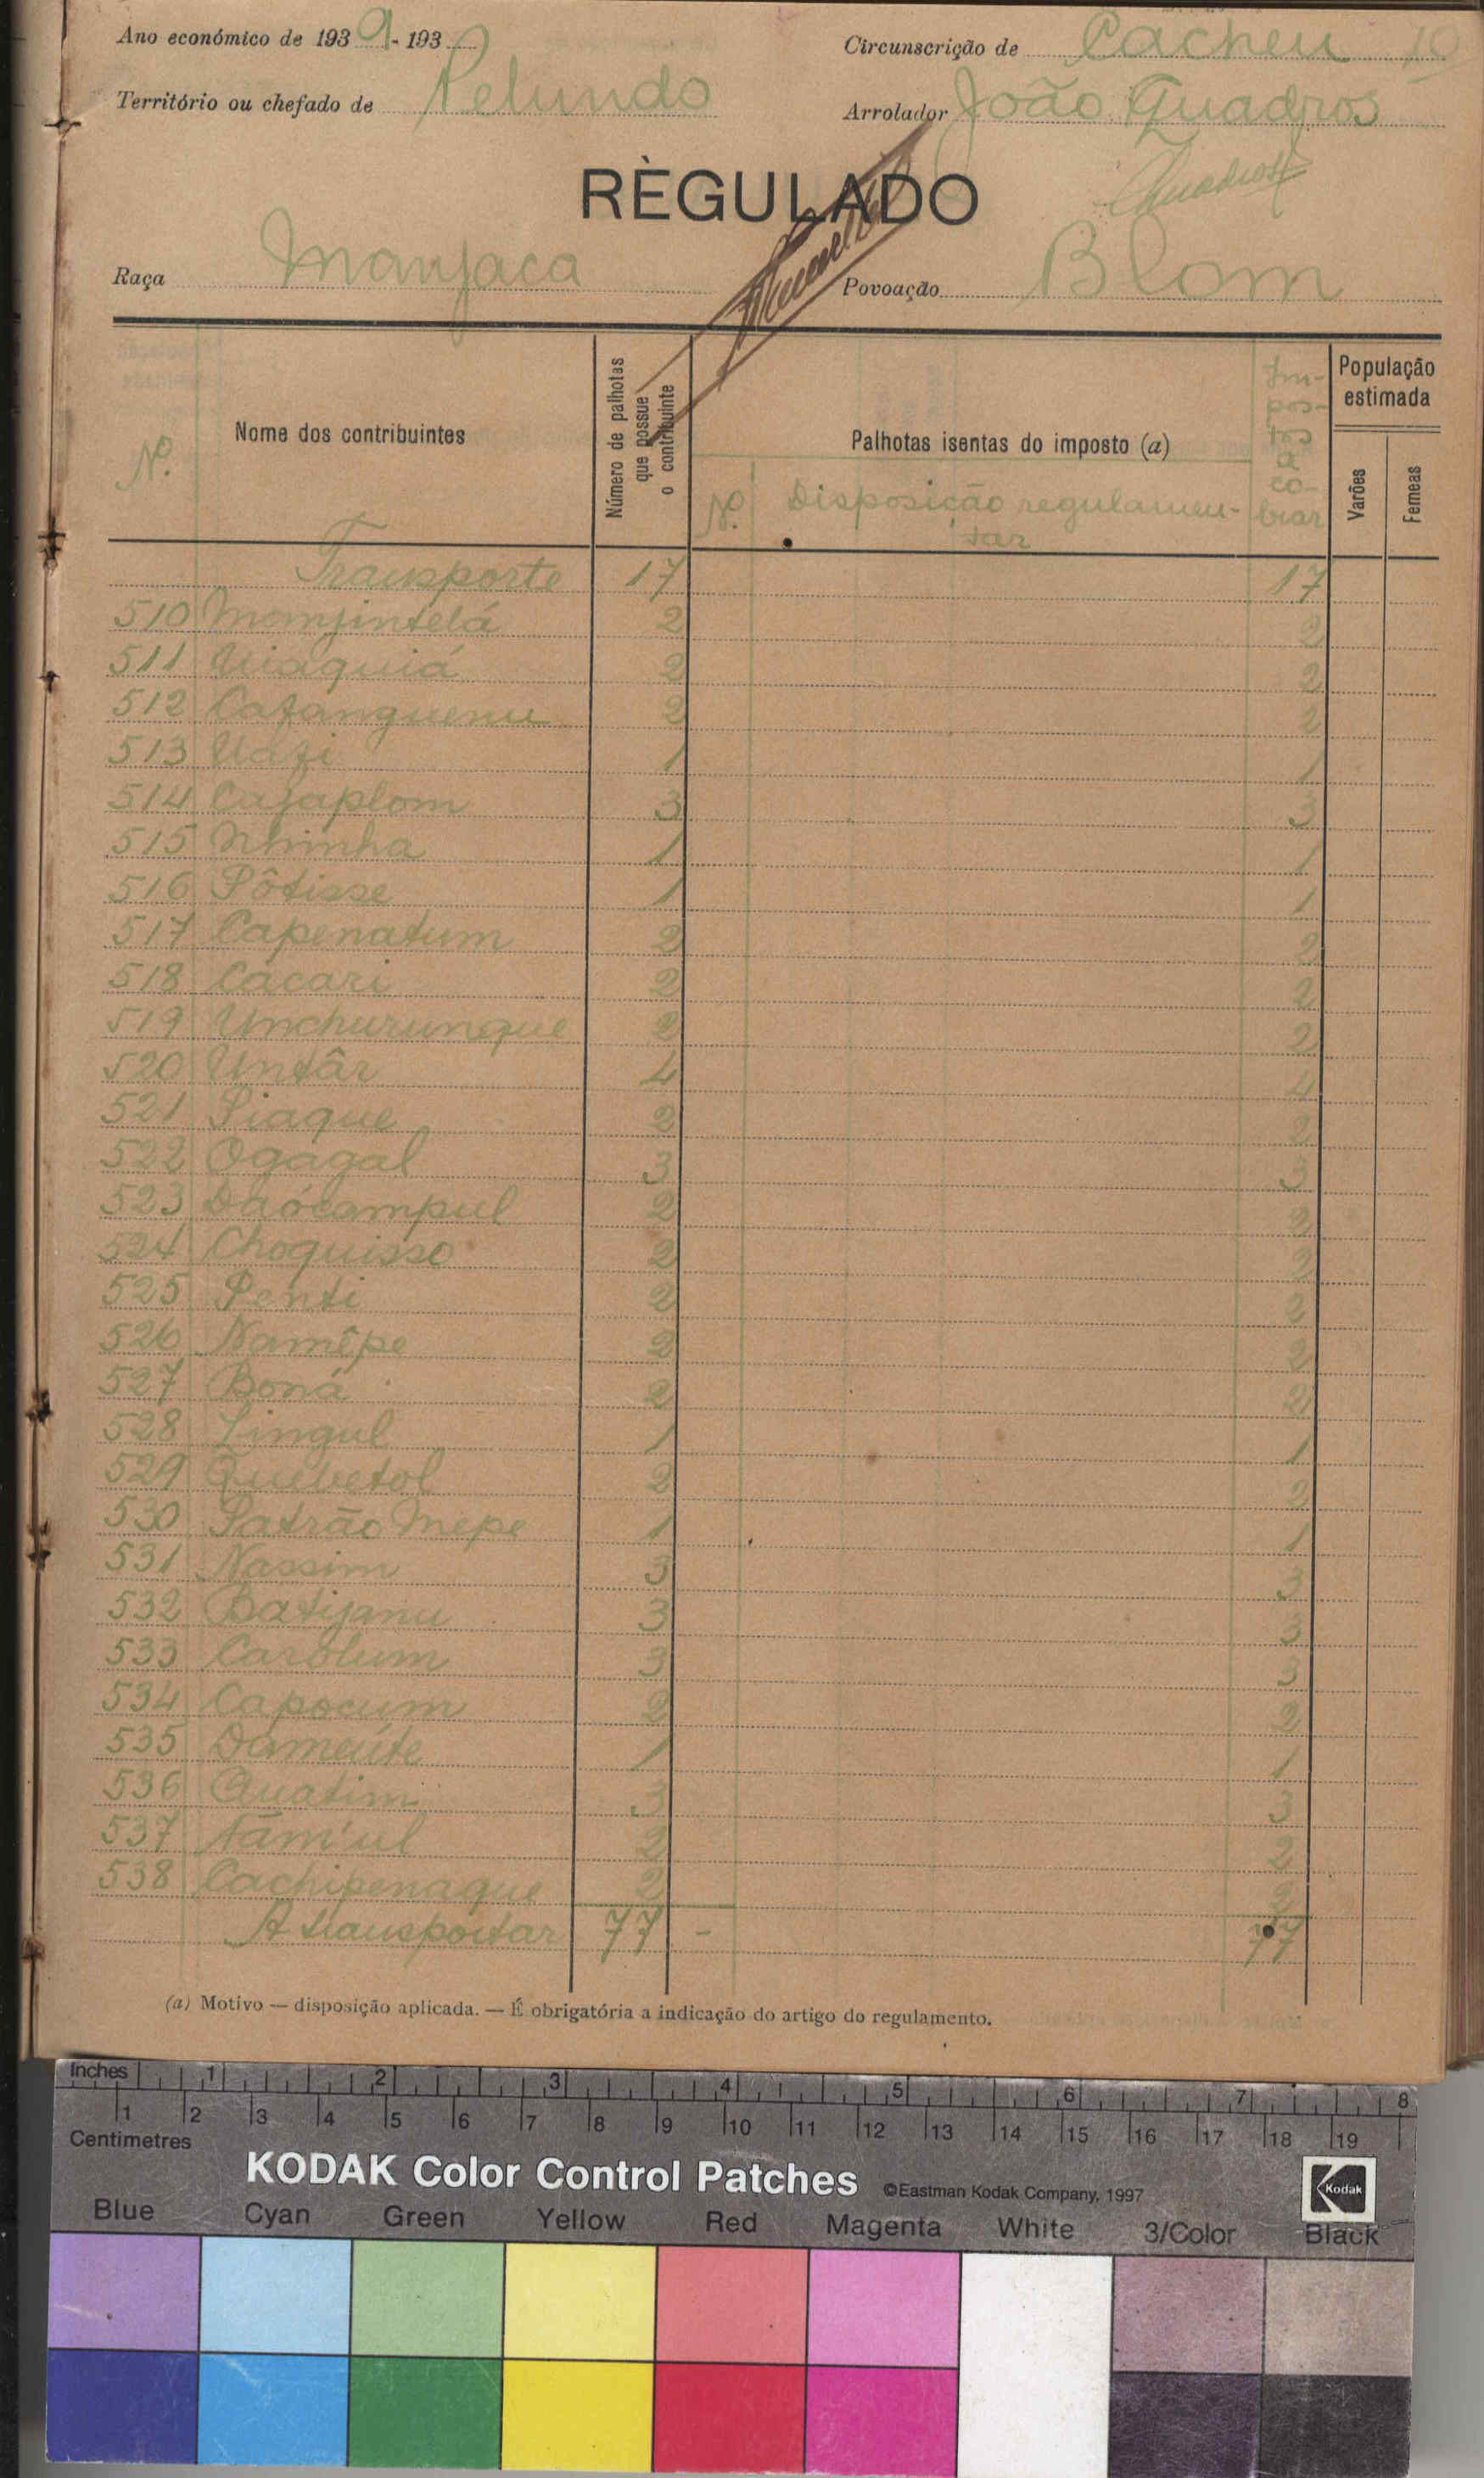 Ano económico de 1939-193
Circunscrição de Cacheu 10
Território ou chefado de Pelundo
Arrolador João Quadros
Quadros
RÈGULADO
Raça Manjaca
Povoação Blom
N.
Nome dos contribuintes
Número de palhotas que possue o contribuinte
Palhotas isentas do imposto (a)
N.
Disposição regulamen-
tar
Im-
pos-
tos
a
co-
brar
População estimada
Varões
Femeas
Transporte 17 17
510 Manjintelá 2 2
511 Uiaquiá 2 2
512 Catanguenu 2 2
513 Uafi 1 1
514 Cajaplom 3 3
515 Nhinha 1 1
516 Pôtisse 1 1
517 Capenatum 2 2
518 Cacari 2 2
519 Unchurunque 2 2
520 Untâr 4 4
521 Piaque 2 2
522 Ogagal 3 3
523 Daócampul 2 2
524 Choquisso 2 2
525 Penti 2 2
526 Namêpe 2 2
527 Boná 2 2
528 Lingul 1 1
529 Quebetol 2 2
530 Patrão Mepe 1 1
531 Nassim 3 3
532 Batijanu 3 3
533 Carólum 3 3
534 Capocum 2 2
535 Dameúte 1 1
536 Quatim 3 3
537 Nam'ul 2 2
538 Cachipenaque 2 2
A transportar 77 - 77
(a) Motivo — disposição aplicada. — É obrigatória a indicação do artigo do regulamento.
Inches 1 2 3 4 5 6 7 8
1 2 3 4 5 6 7 8 9 10 11 12 13 14 15 16 17 18 19
Centimetres
KODAK Color Control Patches ©Eastman Kodak Company, 1997 Kodak
Blue Cyan Green Yellow Red Magenta White 3/Color Black